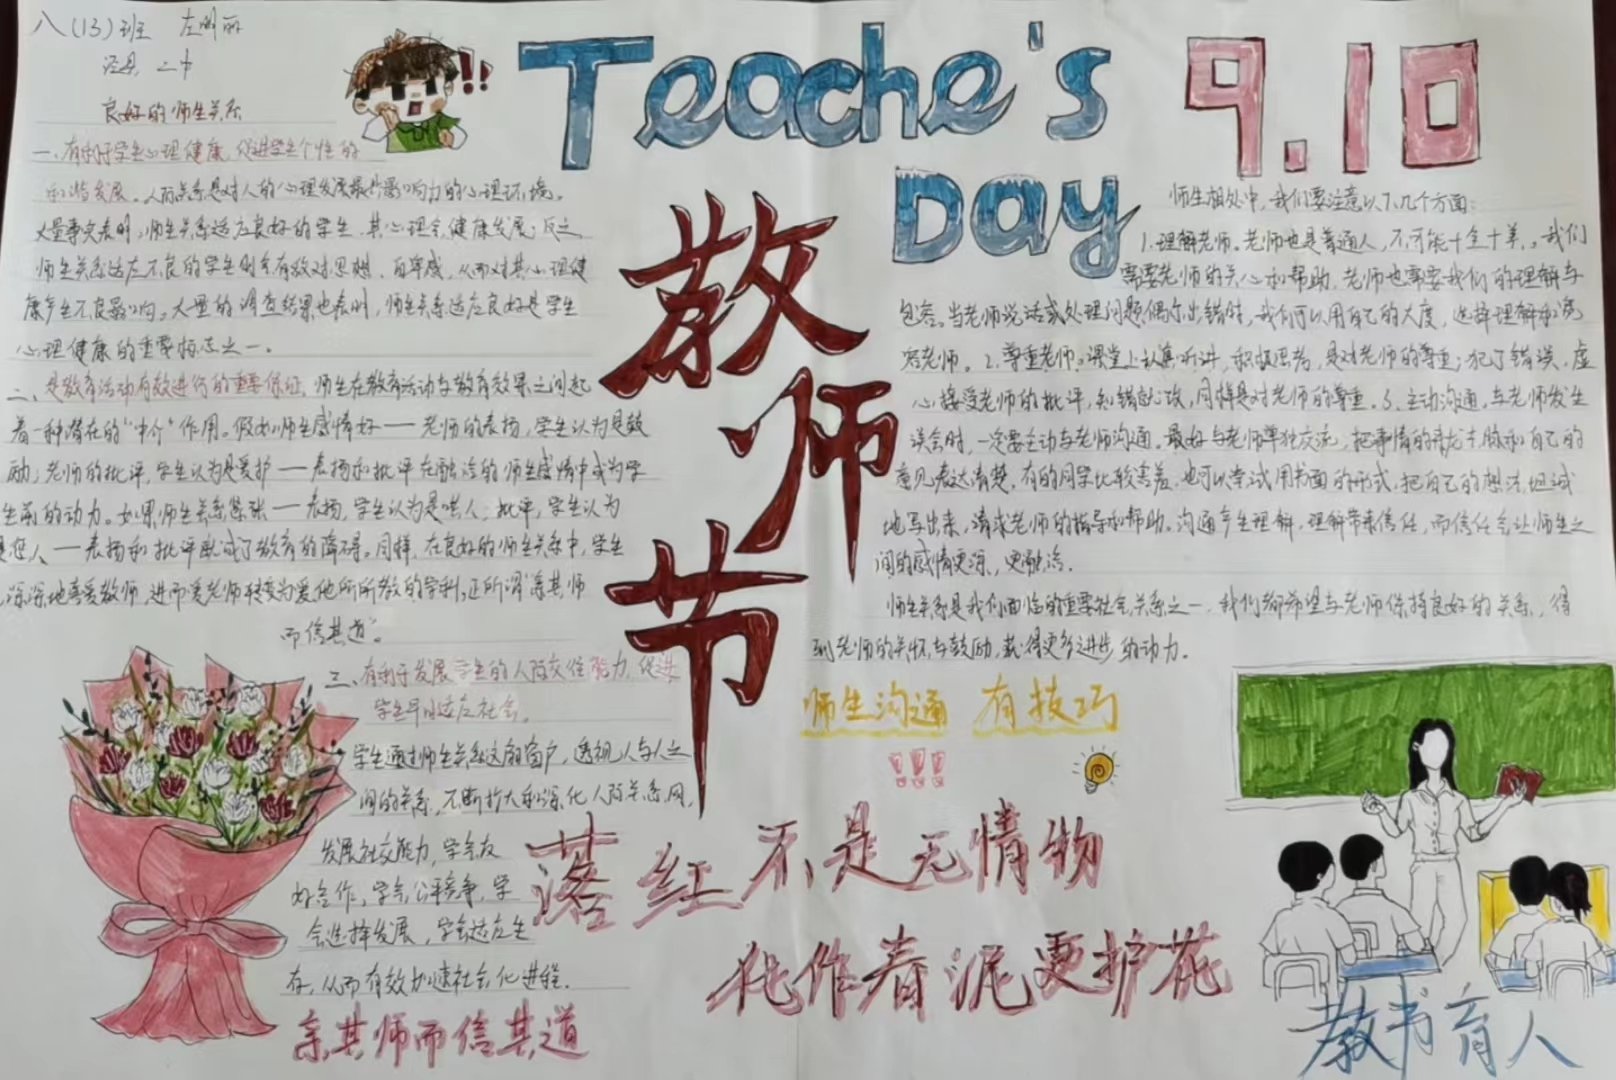 八(13)班
二中
良好的师生关系
一、有利于学生心理健康,促进学生个性的
和谐发展。人际关系是对人的心理发展最具影响力的心理环境。
大量事实表明,师生关系适应良好的学生,其心理会健康发展;反之
师生关系适应不良的学生则会有敌对思想、自卑感,从而对其心理健
康产生不良影响。大量的调查结果也表明,师生关系适应良好是学生
心理健康的重要标志之一。
二、是教育活动有效进行的重要保证,师生在教育活动与教育效果之间起
着一种潜在的“中介”作用。假如师生感情好——老师的表扬,学生认为是鼓
励;老师的批评,学生认为是爱护——表扬和批评在融洽的师生感情中成为学
生前的动力。如果师生关系紧张——表扬,学生认为是哄人;批评,学生认为
是恼人——表扬和批评就成了教育的障碍。同样,在良好的师生关系中,学生
深深地喜爱教师,进而爱老师转变为爱他所所教的学科,正所谓“亲其师
而信其道”。
三、有利于发展学生的人际交往能力,促进
学生早日适应社会。
学生通过师生关系这扇窗户,透视人与人之
间的关系,不断扩大和深化人际关系网,
发展社交能力,学会友
好合作,学会公平竞争,学
会选择发展,学会适应生
存,从而有效加速社会化进程。
亲其师而信其道
Teache's
Day
9.10
教
师
节
师生相处中,我们要注意以下几个方面:
1.理解老师。老师也是普通人,不可能十全十美。我们
需要老师的关心和帮助,老师也需要我们的理解与
包容。当老师说话或处理问题偶尔出错时,我们可以用自己的大度,选择理解和宽
容老师。2.尊重老师。课堂上认真听讲,积极思考,是对老师的尊重;犯了错误,虚
心接受老师的批评,知错就改,同样是对老师的尊重。3.主动沟通。与老师发生
误会时,一定要主动与老师沟通。最好与老师单独交流,把事情的来龙去脉和自己的
意见表达清楚。有的同学比较害羞,也可以尝试用书面的形式,把自己的想法坦诚
地写出来,请求老师的指导和帮助。沟通产生理解,理解带来信任,而信任会让师生之
间的感情更深,更融洽。
师生关系是我们面临的重要社会关系之一,我们都希望与老师保持良好的关系,得
到老师的关怀与鼓励,获得更多进步的动力。
师生沟通 有技巧
!!!
落红不是无情物
化作春泥更护花
教书育人